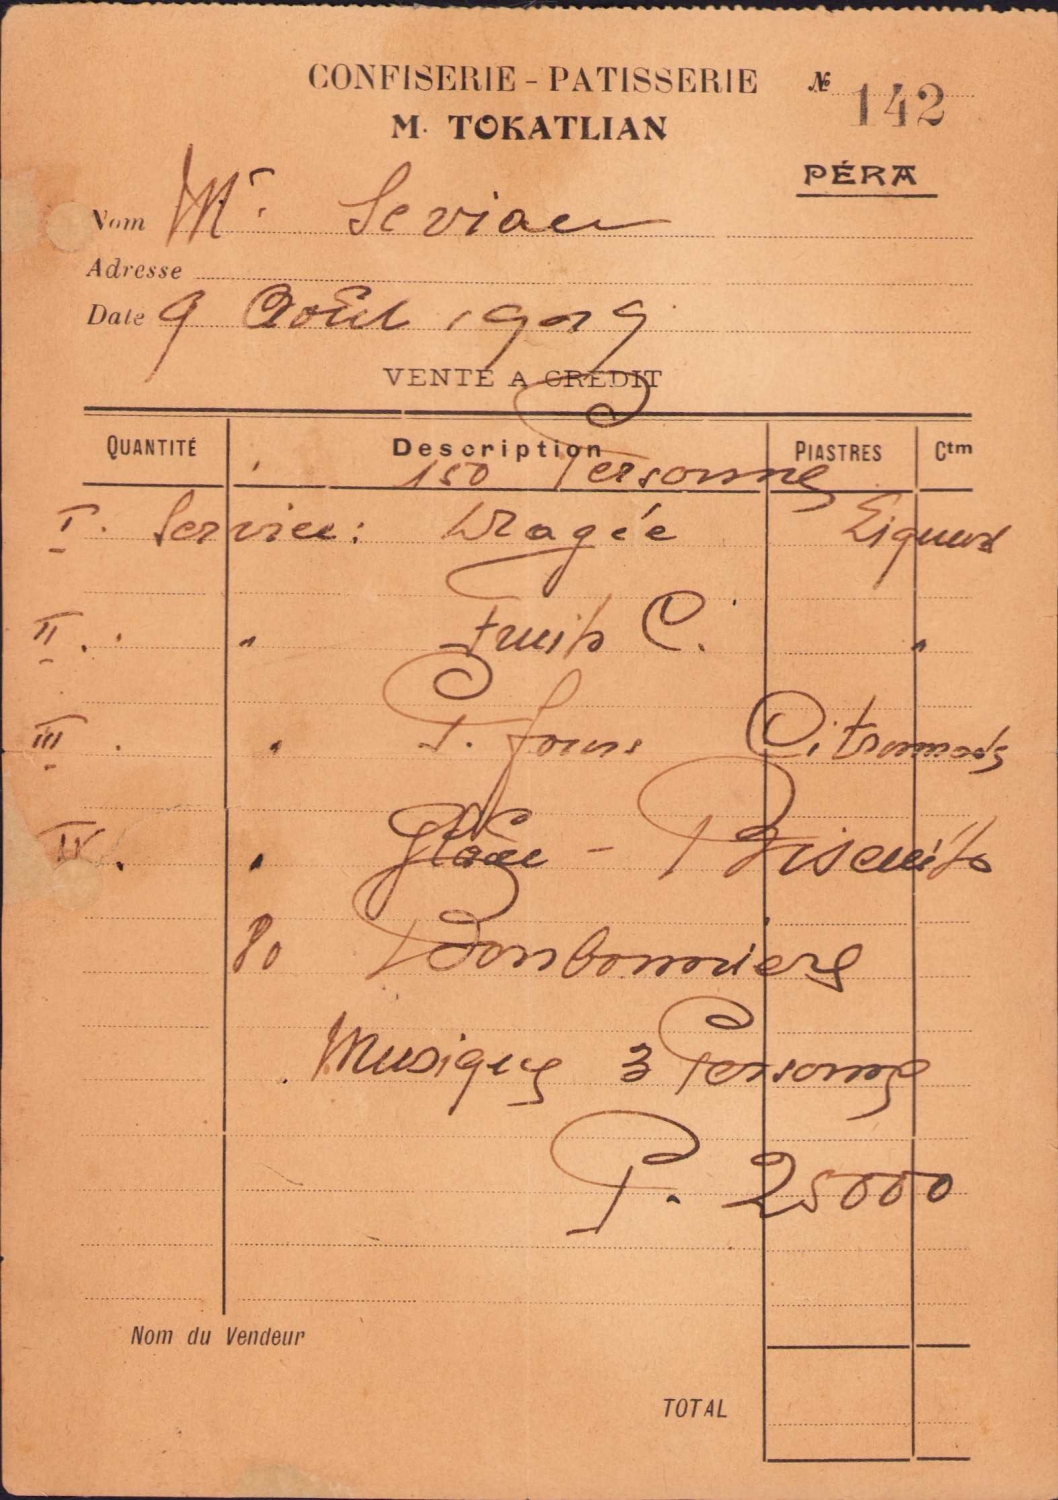 CONFISERIE - PATISSERIE № 142
M. TOKATLIAN
PÉRA
Nom Mr. Sevian
Adresse
Date 9 Août 1929
VENTE A CREDIT
QUANTITÉ Description PIASTRES Ctm
150 Personnes
I. Service: Dragée Liqueur
II. " Fruits C. "
III. " P. fours Citronnads
IV. " Glace - Biscuits
80 Bonbonnière
Musique 3 Personnes
P. 25000
Nom du Vendeur
TOTAL